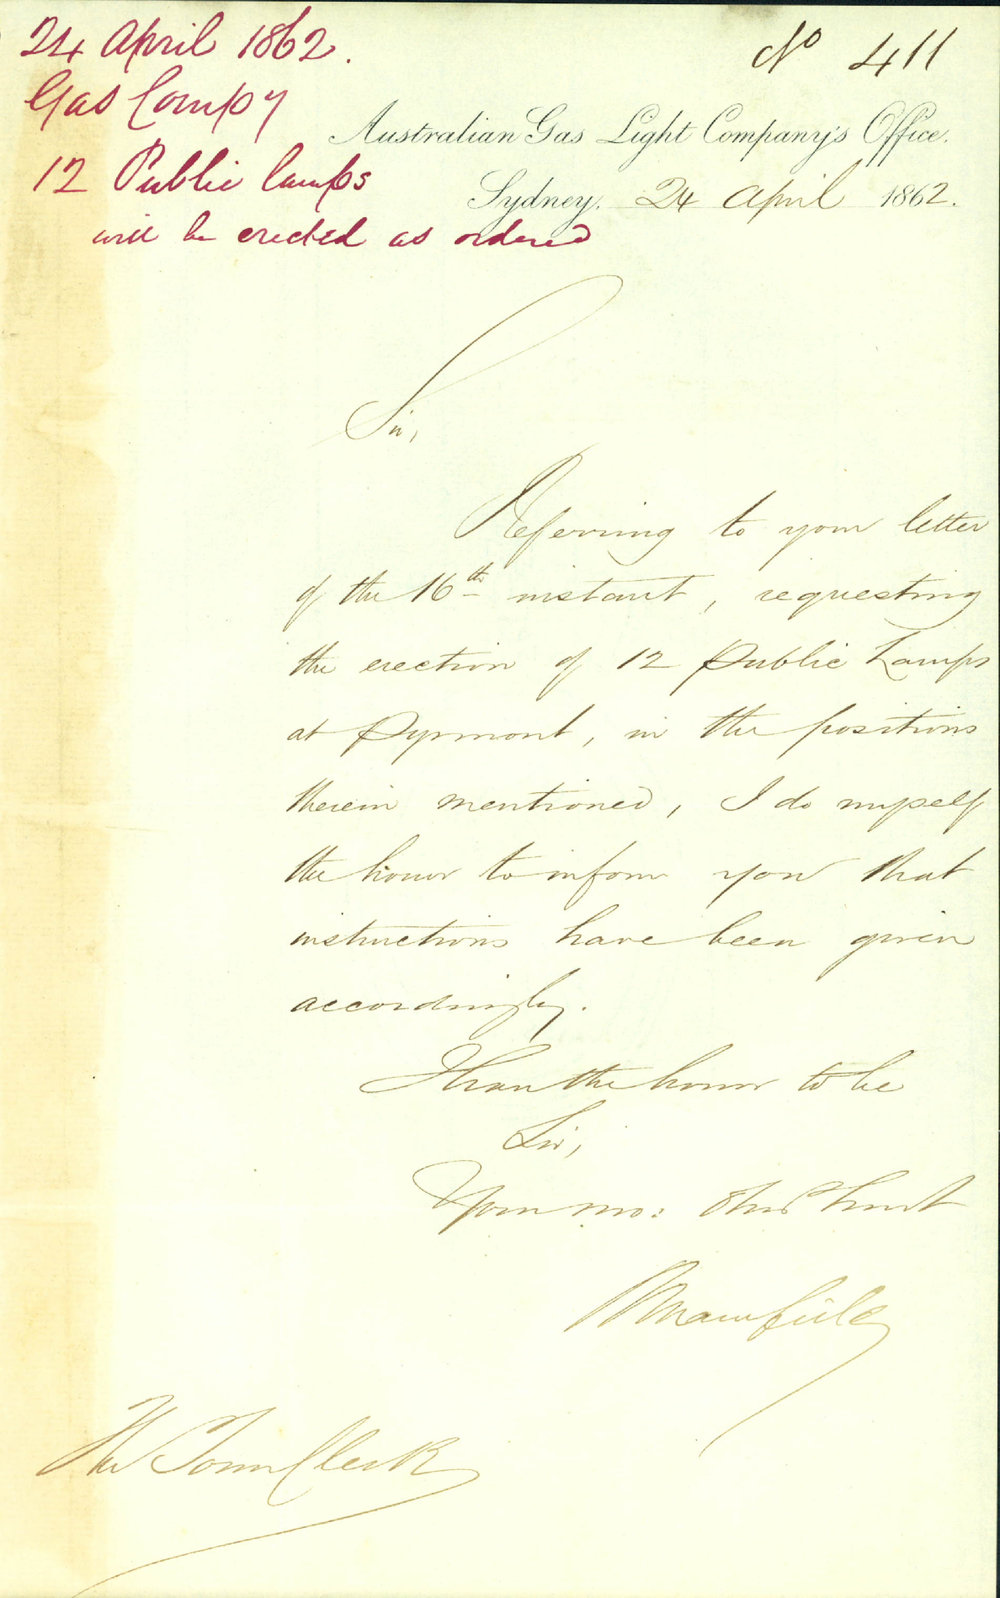 24 April 1862.
Gas Compy
12 Public lamps
will be erected as ordered
No 411
Australian Gas Light Company's Office.
Sydney, 24 April 1862.
Sir,
Referring to your letter
of the 16th instant, requesting
the erection of 12 Public Lamps
at Pyrmont, in the positions
therein mentioned, I do myself
the honor to inform you that
instructions have been given
accordingly.
I have the honor to be
Sir,
Your mo: Obed Servt
Mansfield
The Town Clerk